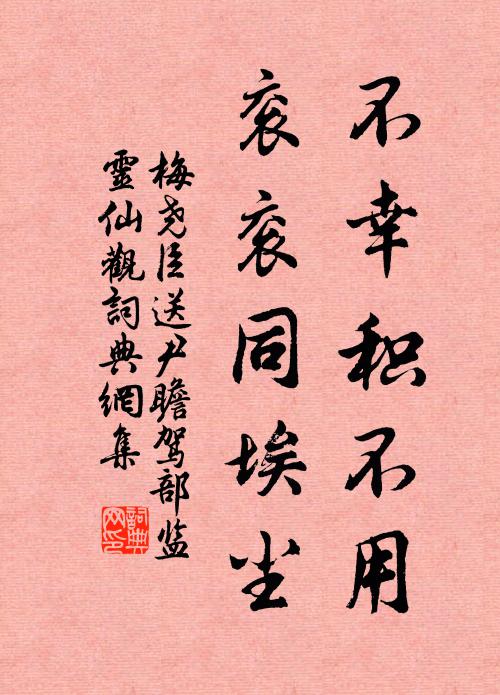 不幸积不用
衮衮同埃尘
梅尧臣送尹瞻驾部监
靈仙觀詞典網集
詞典
网印